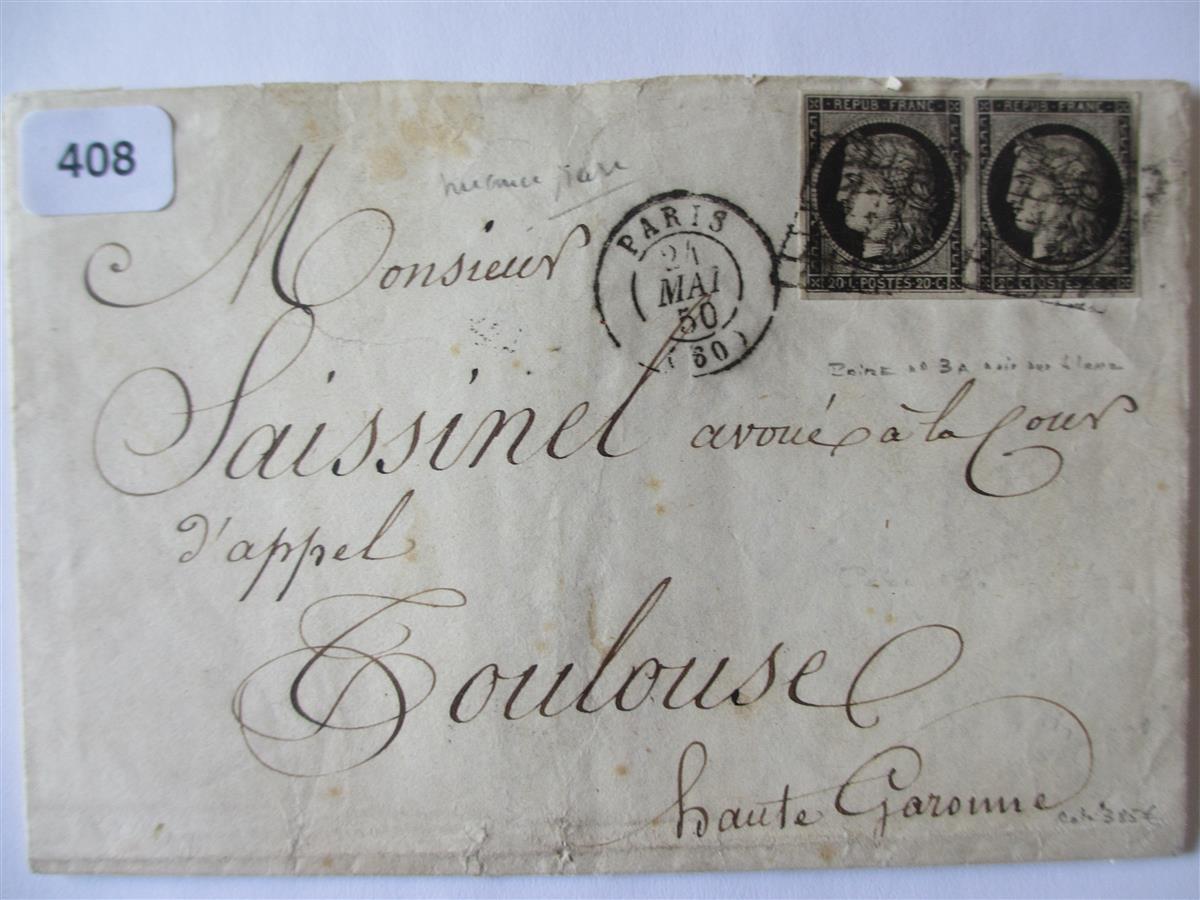 408
REPUB·FRANC·
REPUB·FRANC·
20·C·POSTES·20·C·
20·C·POSTES·
PARIS
24
MAI
50
(60)
Monsieur
Saissinel avoué à la Cour
d'appel
Toulouse
haute Garonne
Paire n° 3A noir sur blanc
Cote 385€